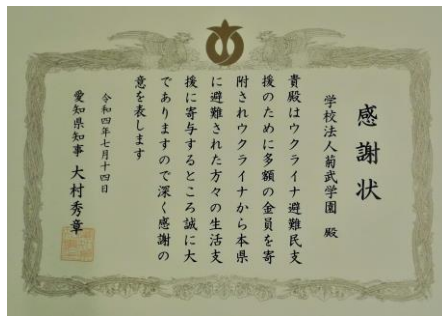 感謝状
学校法人菊武学園 殿
貴殿はウクライナ避難民支
援のために多額の金員を寄
附されウクライナから本県
に避難された方々の生活支
援に寄与するところ誠に大
でありますので深く感謝の
意を表します
令和四年七月十四日
愛知県知事 大村秀章